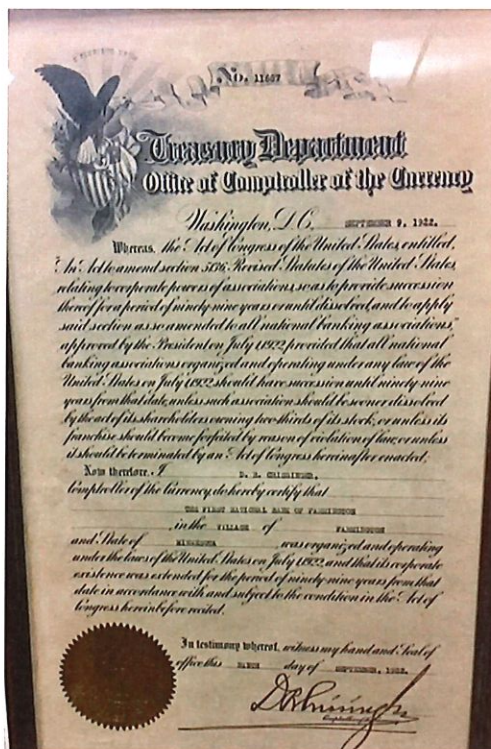 No. 11687
Treasury Department
Office of Comptroller of the Currency
Washington, D.C., SEPTEMBER 9, 1922.
Whereas, the Act of Congress of the United States, entitled,
"An Act to amend section 5136, Revised Statutes of the United States,
relating to corporate powers of associations, so as to provide succession
thereof for a period of ninety-nine years or until dissolved, and to apply
said section as so amended to all national banking associations,"
approved by the President on July 1, 1922, provided that all national
banking associations organized and operating under any law of the
United States on July 1, 1922, should have succession until ninety-nine
years from that date, unless such association should be sooner dissolved
by the act of its shareholders owning two-thirds of its stock, or unless its
franchise should become forfeited by reason of violation of law, or unless
it should be terminated by an Act of Congress hereinafter enacted;
Now therefore, I D. R. CRISSINGER,
Comptroller of the Currency, do hereby certify that
THE FIRST NATIONAL BANK OF FARMINGTON
, in the VILLAGE of FARMINGTON
and State of MINNESOTA was organized and operating
under the laws of the United States on July 1, 1922, and that its corporate
existence was extended for the period of ninety-nine years from that
date in accordance with and subject to the condition in the Act of
Congress hereinbefore recited.
In testimony whereof, witness my hand and Seal of
office this NINTH day of SEPTEMBER, 1922.
Comptroller of the Currency